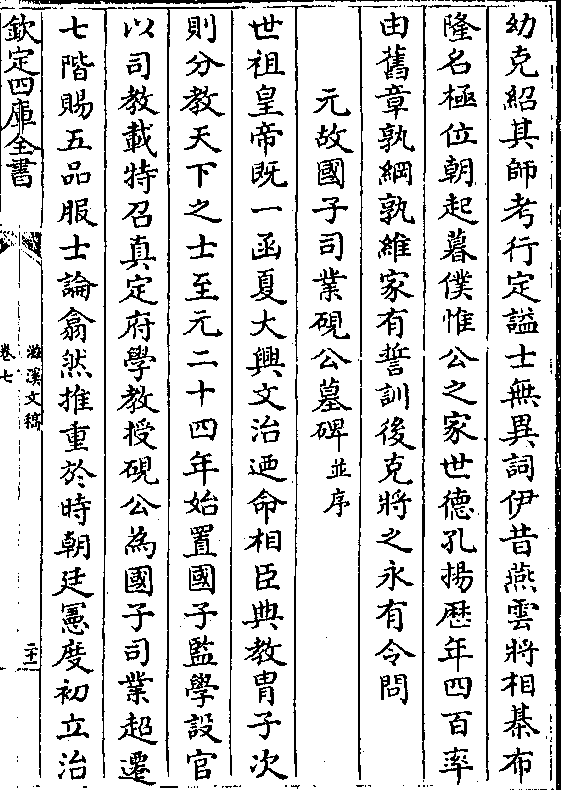 幼克紹其師考行定諡士無異詞伊昔燕雲將相棊布
隆名極位朝起暮僕惟公之家世德孔揚歴年四百率
由舊章孰綱孰維家有誓訓後克將之永有令問
元故國子司業硯公墓碑並序
世祖皇帝既一函夏大興文治廼命相臣典教胄子次
則分教天下之士至元二十四年始置國子監學設官
以司教載特召真定府學教授硯公為國子司業超遷
七階賜五品服士論翕然推重於時朝廷憲度初立治
欽定四庫全書
滋溪文稿
卷七
二十一